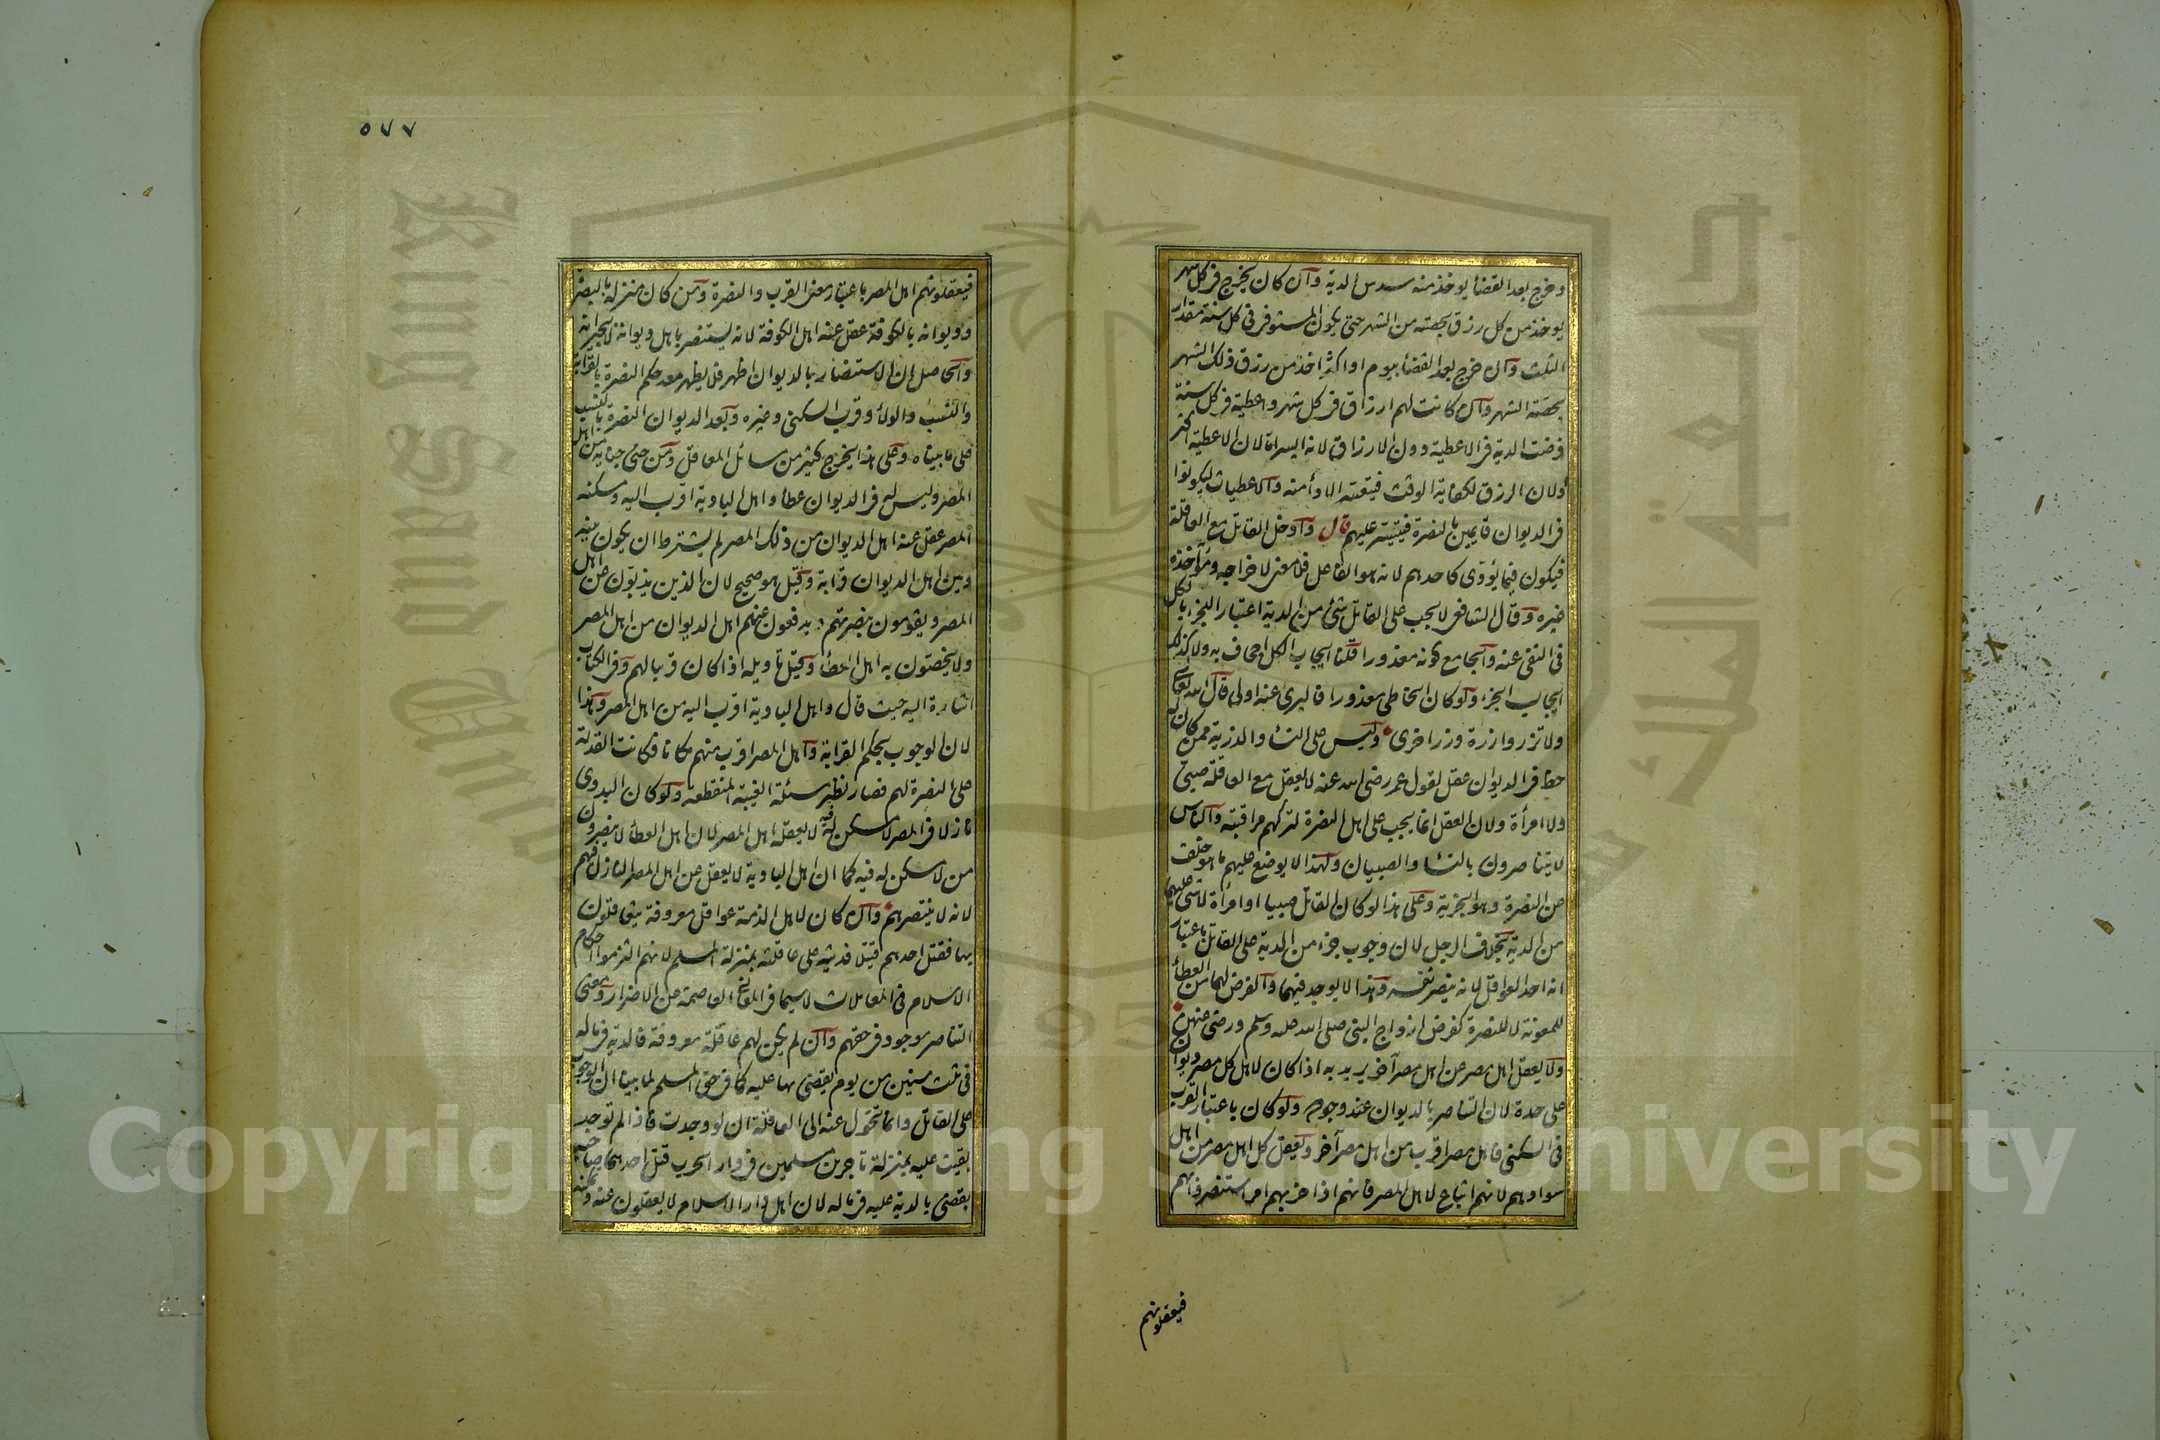 وخرج بعد القضا يوخذ منه سدس الدية وان كان يخرج في كل شهر
يوخذ من كل رزق بحصته من الشهر حتى يكون المستوفى في كل سنة مقدار
الثلث وان خرج بعد القضا بيوم او اكثر اخذ من رزق ذلك الشهر
بحصة الشهر وان كانت لهم ارزاق في كل شهر واعطية في كل سنة
فرضت الدية في الاعطية دون الارزاق لانه ايسر اما لان الاعطية اكثر
ولان الرزق لكفاية الوقت فيتعسر الاداء منه والاعطيات ليكونوا
في الديوان قايمين بالنصرة فيتيسر عليهم قال وادخل القاتل مع العاقلة
فيكون فيما يؤدي كاحدهم لانه هو الفاعل فلا معنى لاخراجه ومؤاخذة
غيره وقال الشافعي لا يجب على القاتل شئ من الدية اعتبارا للجزء بالكل
في النفي عنه والجامع كونه معذورا قلنا ايجاب الكل اجحاف به ولا كذلك
ايجاب الجزء ولو كان الخاطى معذورا فالبرى عنه اولى قال الله تعالى
ولا تزر وازرة وزر اخرى وليس على النسا والذرية ممن كان له
حظ في الديوان عقل لقول عمر رضى الله عنه لا يعقل مع العاقلة صبي
ولا امرأة ولان العقل انما يجب على اهل النصرة لتركهم مراقبته والناس
لا يتناصرون بالنسا والصبيان ولهذا لا يوضع عليهم ما هو خلف
عن النصرة وهو الجزية وعلى هذا لو كان القاتل صبيا او امرأة لا شئ عليهما
من الدية بخلاف الرجل لان وجوب جزء من الدية على القاتل باعتبار
انه احد العواقل لانه ينصر نفسه وهذا لا يوجد فيهما والفرض لهما من العطأ
للمعونة لا للنصرة كفرض ازواج النبي صلى الله عليه وسلم ورضى عنهن
ولا يعقل اهل مصر عن اهل مصر آخر يريد به اذا كان لاهل كل مصر ديوان
على حدة لان التناصر بالديوان عند وجوده ولو كان باعتبار القرب
في السكنى فاهل مصر اقرب من اهل مصر آخر ويعقل كل اهل مصر من اهل
سوادهم لانهم اتباع لاهل المصر فانهم اذا حزبهم امر استنصروا بهم
فيعقلونهم
٥٧٧
فيعقلونهم اهل المصر باعتبار معنى القرب والنصرة ومن كان منزله بالبصرة
وديوانه بالكوفة عقل عنه اهل الكوفة لانه يستنصر باهل ديوانه لا بجيرانه
والحاصل ان الاستنصار بالديوان اظهر فلا يظهر معه حكم النصرة بالقرابة
والنسب والولأ وقرب السكنى وغيره وبعد الديوان النصرة بالنسب
على ما بيناه وعلى هذا يخرج كثير من مسائل المعاقل ومن جنى جناية من اهل
المصر وليس له في الديوان عطأ واهل البادية اقرب اليه ومسكنه
المصر عقل عنه اهل الديوان من ذلك المصر لم يشترط ان يكون بينه
وبين اهل الديوان قرابة وقيل هو صحيح لان الذين يذبون عن اهل
المصر ويقومون بنصرتهم ويدفعون عنهم اهل الديوان من اهل المصر
ولا يخصون به اهل العطأ وقيل تاويله اذا كان قريبا لهم وفي الكتاب
اشارة اليه حيث قال واهل البادية اقرب اليه من اهل المصر وهذا
لان الوجوب بحكم القرابة واهل المصر اقرب منهم مكانا فكانت القدرة
على النصرة لهم فصار نظير مسئلة الغيبة المنقطعة ولو كان البدوي
نازلا في المصر لا مسكن له فيه لا يعقله اهل المصر لان اهل العطأ لا ينصرون
من لا مسكن له فيه كما ان اهل البادية لا يعقل عن اهل المصر النازل فيهم
لانه لا ينتصر بهم وان كان لاهل الذمة عواقل معروفة يتعاقلون
بها فقتل احدهم قتيلا فديته على عاقلته بمنزلة المسلم لانهم التزموا احكام
الاسلام في المعاملات لا سيما في المعاني العاصمة عن الاضرار ومعنى
التناصر موجود في حقهم وان لم يكن لهم عاقلة معروفة فالدية في ماله
في ثلث سنين من يوم يقضى بها عليه كما في حق المسلم لما بينا ان الوجوب
على القاتل وانما تتحول عنه الى العاقلة ان لو وجدت فاذا لم توجد
بقيت عليه بمنزلة تاجرين مسلمين في دار الحرب قتل احدهما صاحبه
يقضى بالدية عليه في ماله لان اهل دار الاسلام لا يعقلون عنه
Copyright © King Saud University
King Saud University
جامعة الملك سعود